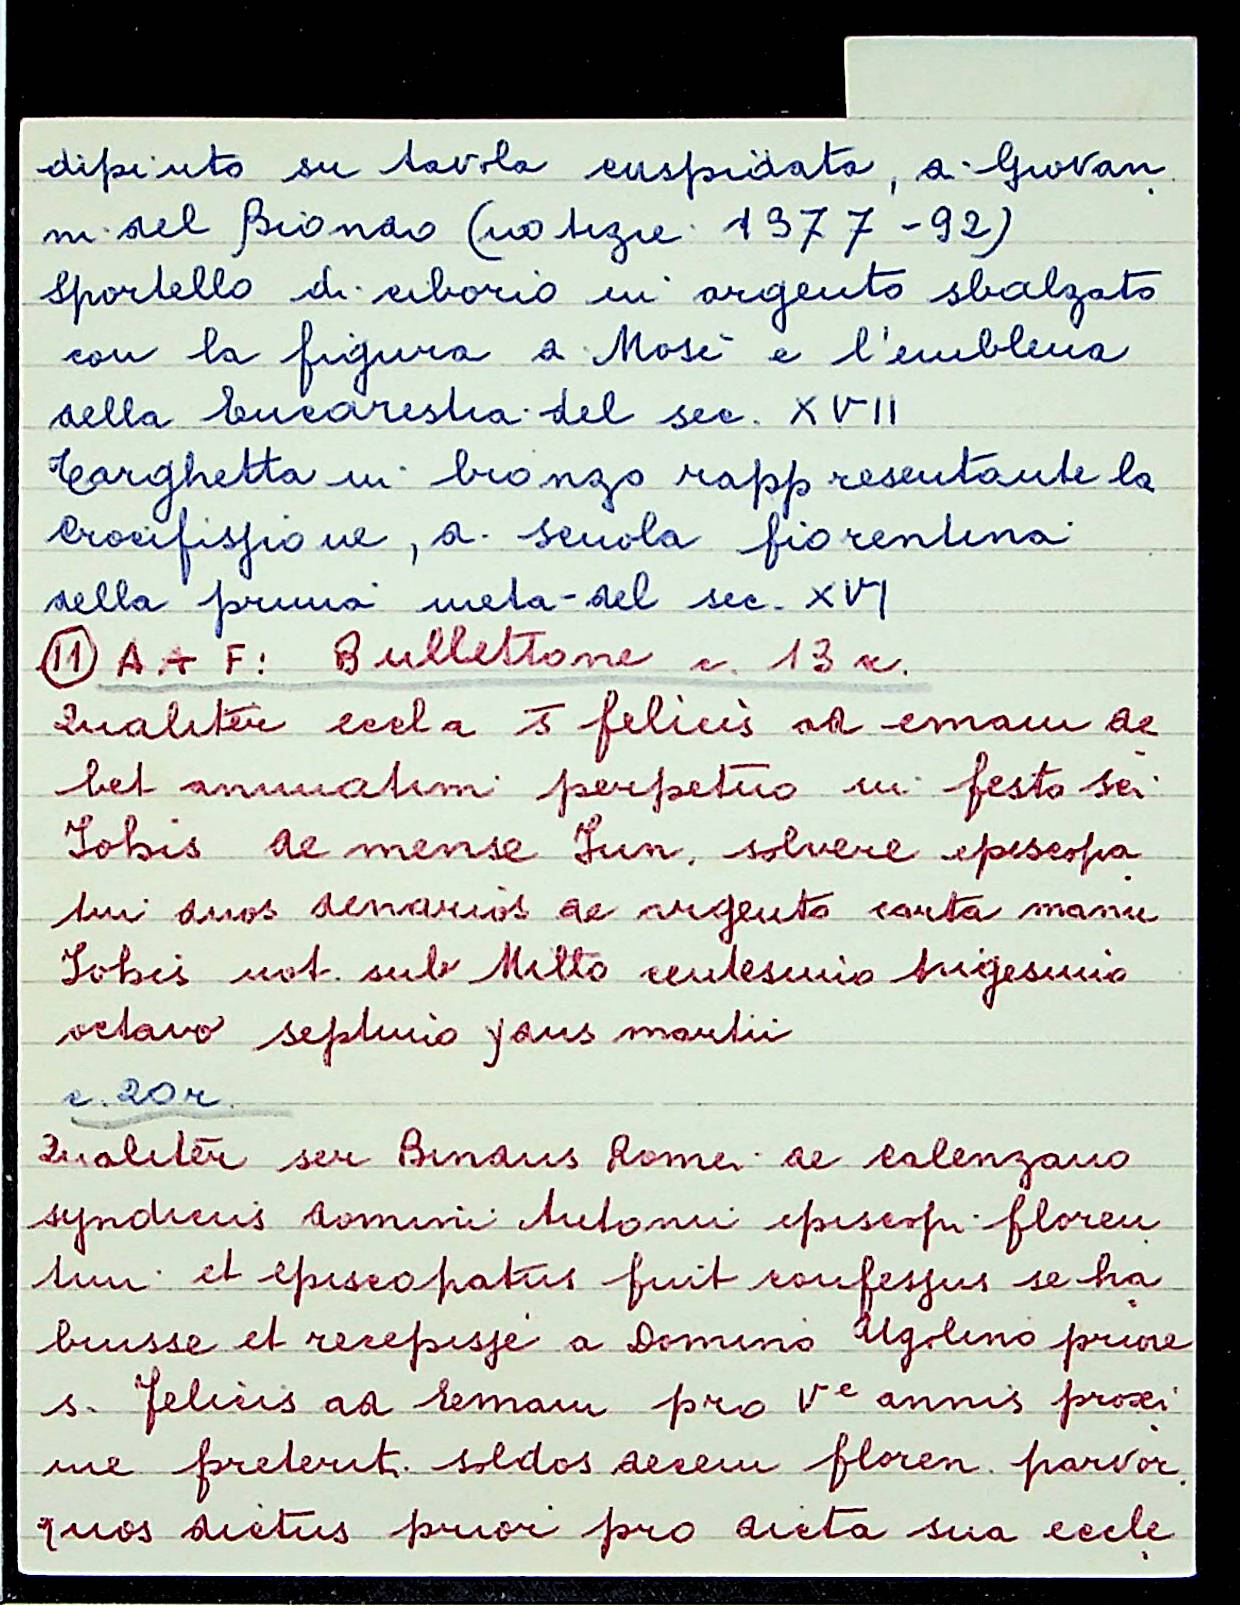 dipinto su tavola cuspidata, di Giovan
ni del Biondo (notizie 1377-92)
Sportello di ciborio in argento sbalzato
con la figura di Mosè e l'emblema
della Eucarestia del sec. XVII
Targhetta in bronzo rappresentante la
Crocifissione, di scuola fiorentina
della prima metà del sec. XVI
(11) A A F: Bullettone c. 13 r.
Qualitēr eccla S̄ felicis ad emam de
bet annuatim perpetuo in festo sci
Johis de mense Jun. solvere episcopa
tui duos denarios de argento carta manu
Johis not. sub Millo centesimo trigesimo
octavo septimo ydus martii
c. 20 r.
Qualitēr ser Bindus Romei de Calenzano
syndicus domini Antonii episcopi floren
tini et episcopatus fuit confessus se ha
buisse et recepisse a Domino Ugolino priore
s. Felicis ad Emam pro Vᵉ annis proxi
me preterit. soldos decem floren. parvor.
quos dictus priori pro dicta sua eccle